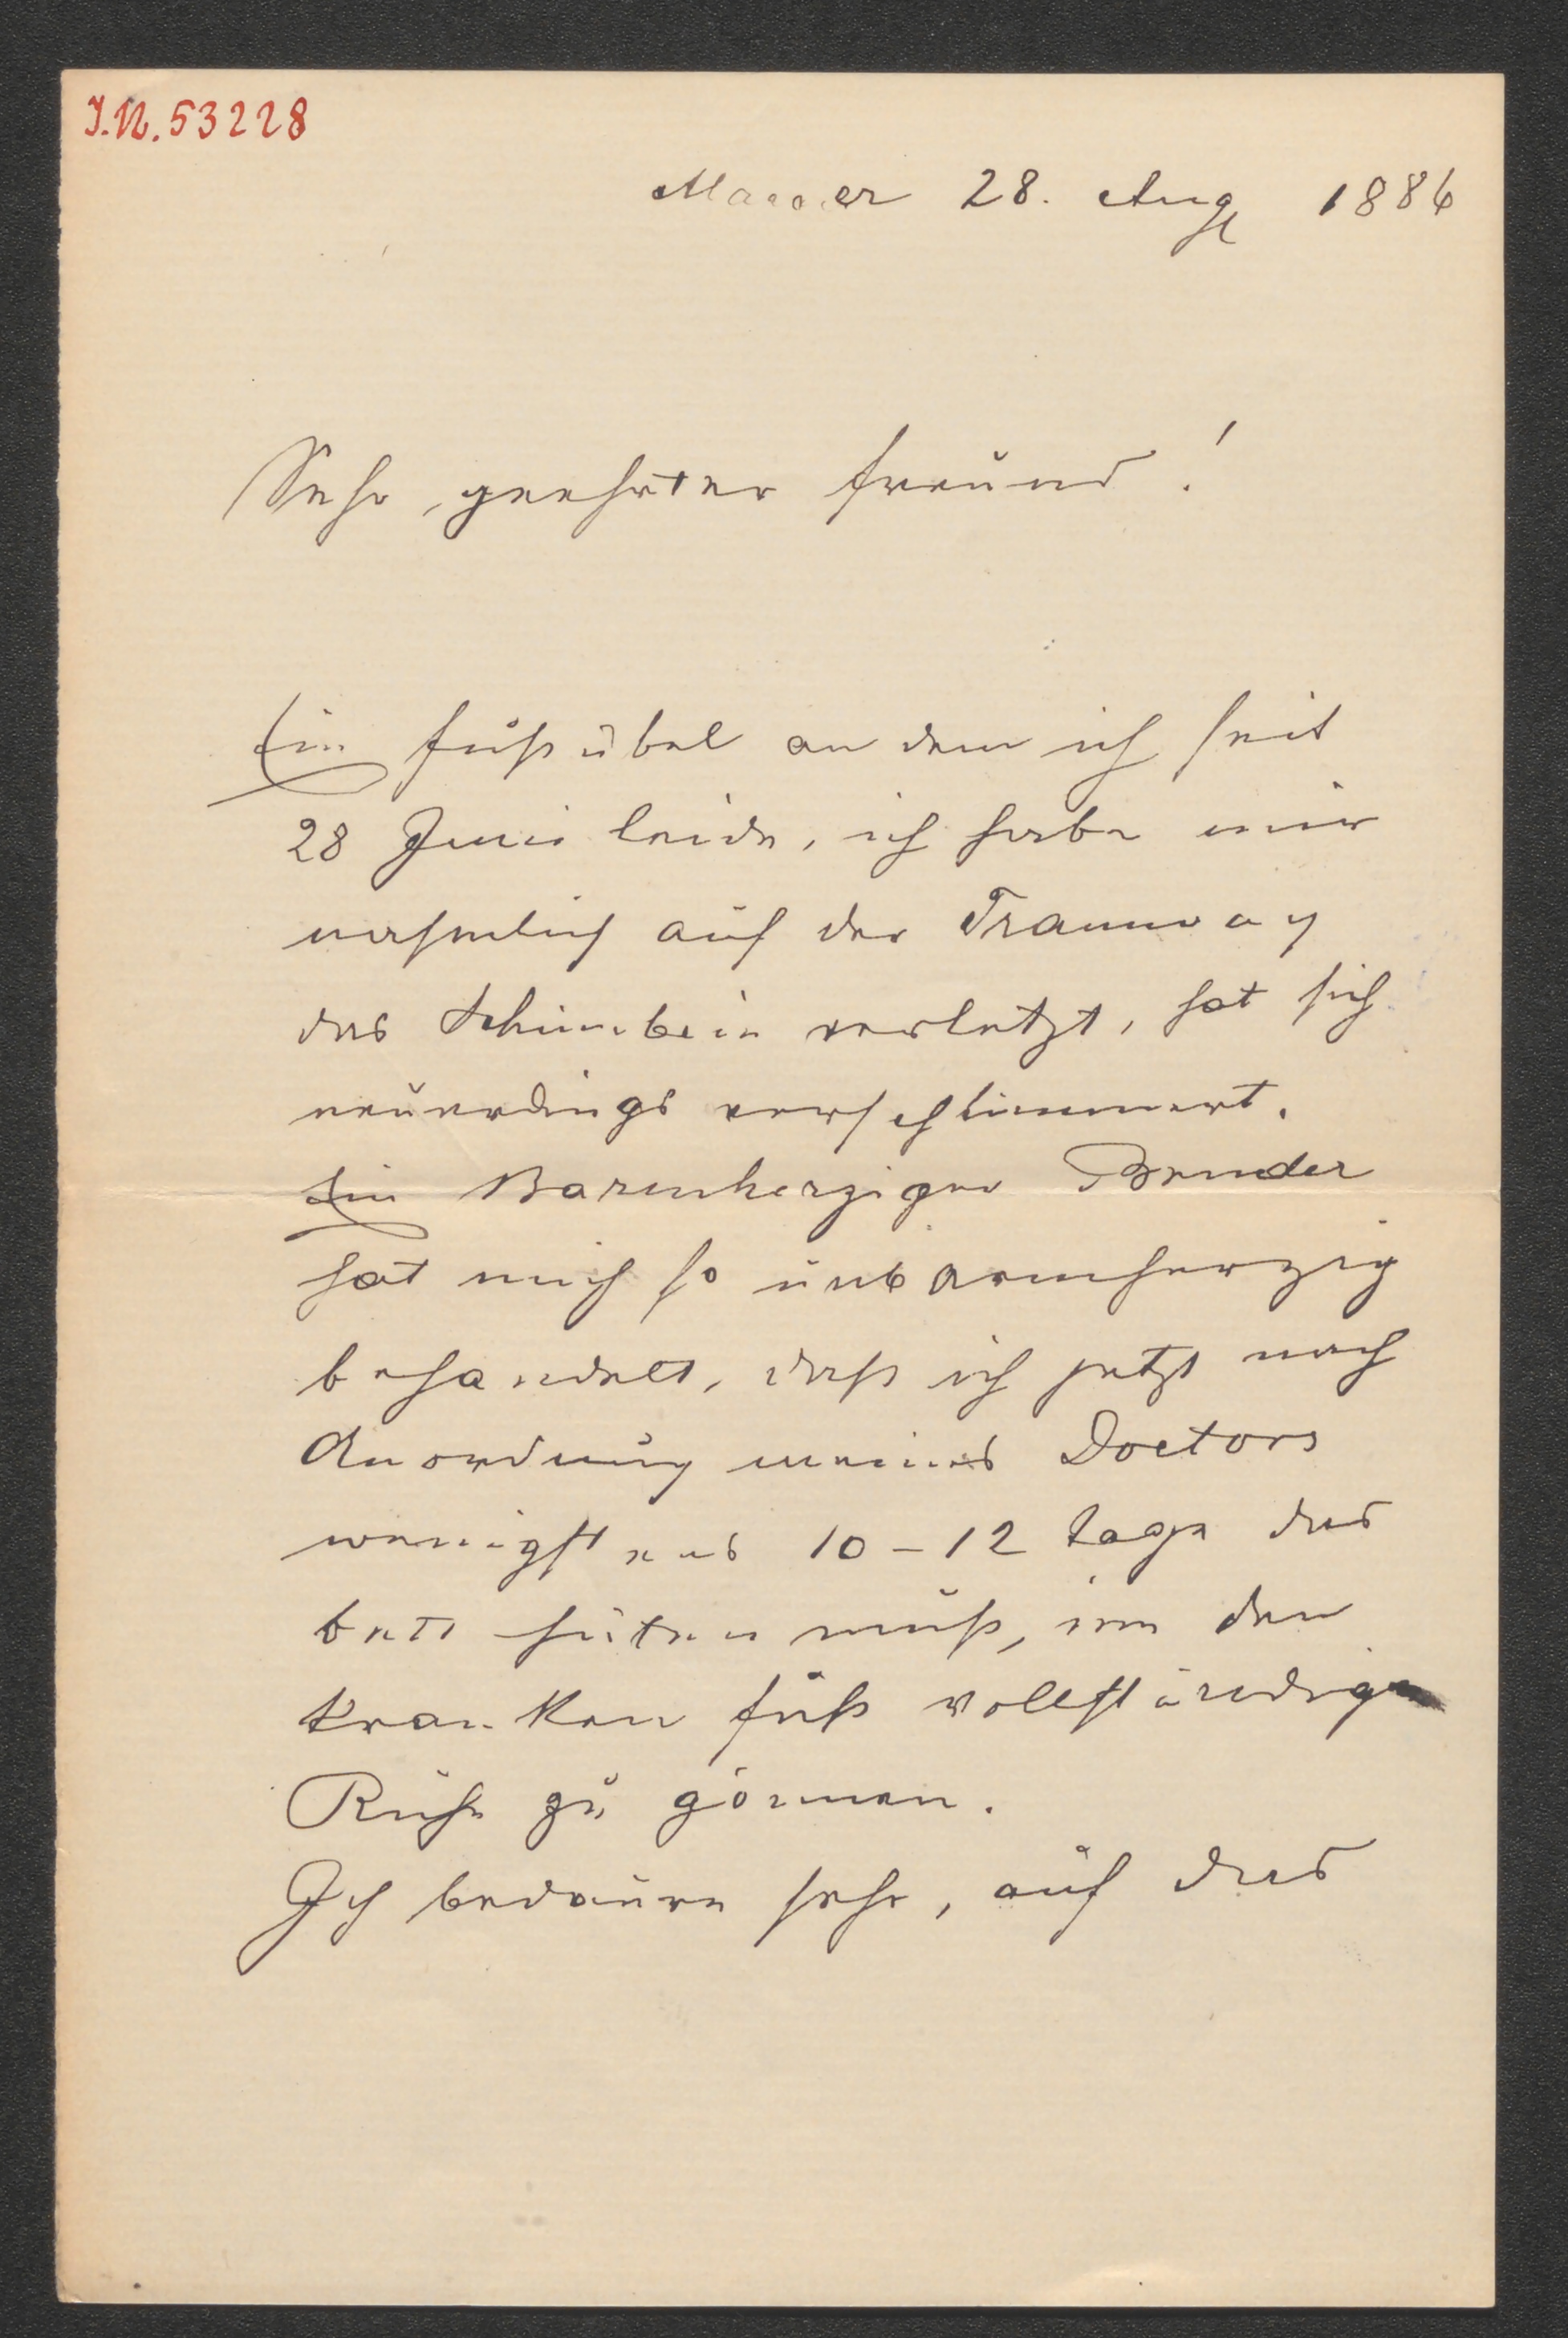 J.N. 53228
Mauer 28. Aug 1886
Sehr geehrter Freund!
Ein Fußübel an dem ich seit
28 Juni leide, ich habe mir
nehmlich auf der Tramway
das Schienbein verletzt, hat sich
neuerdings verschlimmert.
Ein Barmherziger Bruder
hat mich so unbarmherzig
behandelt, daß ich jetzt nach
Anordnung meines Doctors
wenigstens 10–12 Tage das
Bett hüten muß, um den
kranken Fuß vollständige
Ruhe zu gönnen.
Ich bedaure sehr, auf das